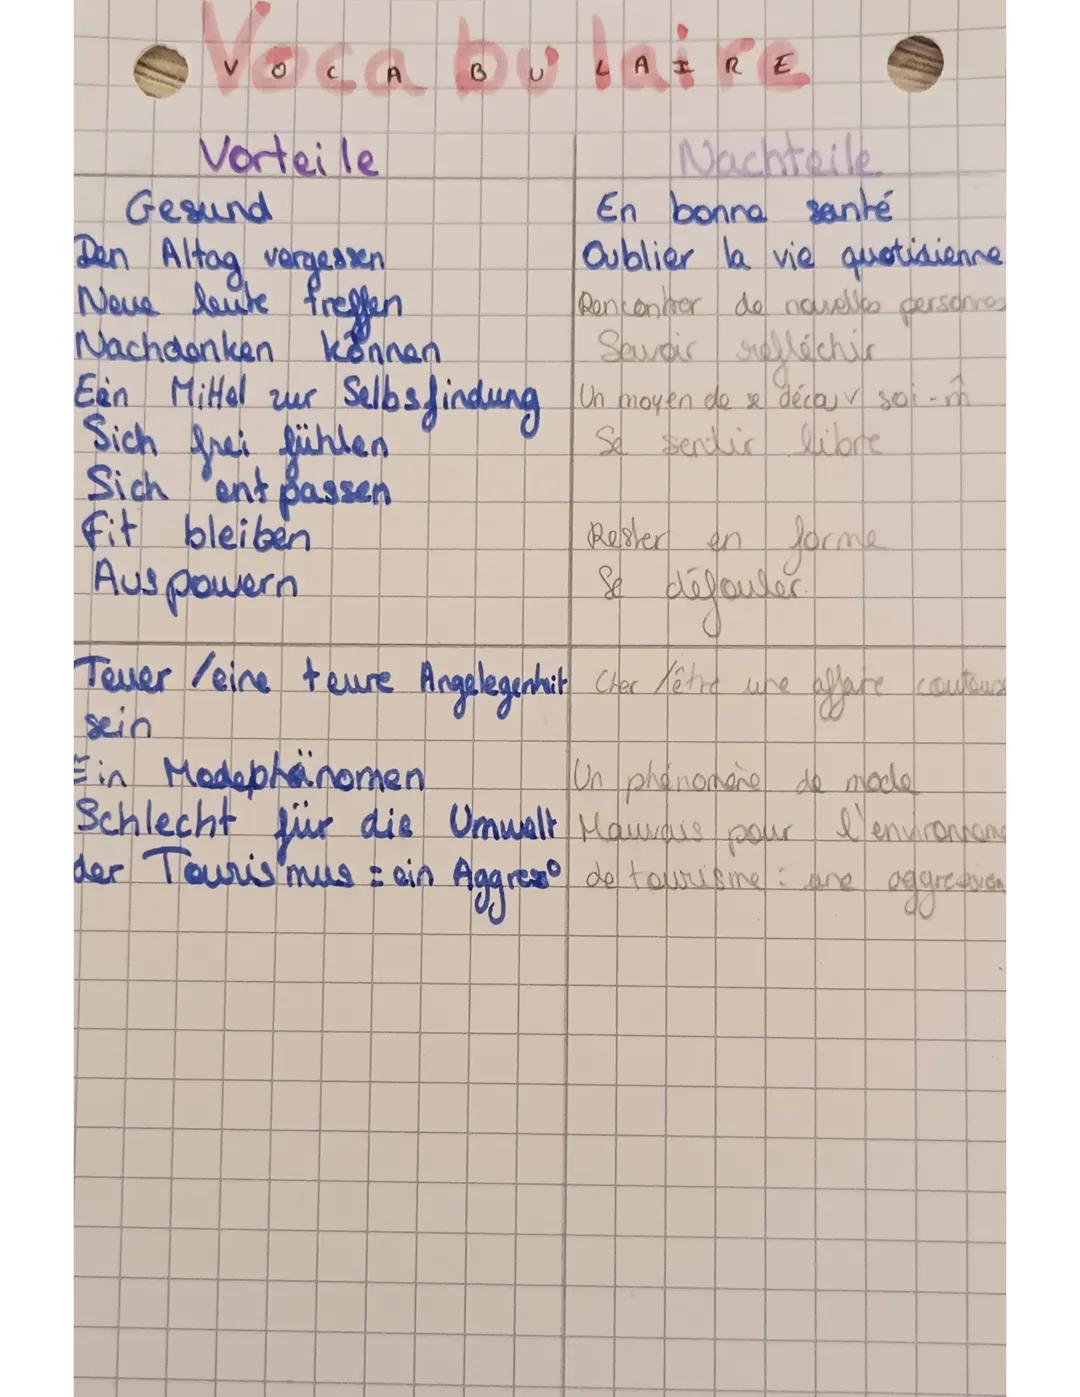 Vocabulaire
VOCABULAIRE
Vorteile Nachteile
Gesund En bonne santé
Den Altag vergessen Oublier la vie quotidienne
Neue leute treffen Rencontrer de nouvelles personnes
Nachdenken können Savoir refléchir
Ein Mittel zur Selbsfindung Un moyen de se décou v soi-m̂
Sich frei fühlen Se sentir libre
Sich entpassen
Fit bleiben Rester en forme
Auspowern Se défouler
Teuer /eine teure Angelegenheit Cher /être une affaire couteuse
sein
Ein Modephänomen Un phénomène de mode
Schlecht für die Umwelt Mauvais pour l'environnem
der Tourismus = ein Aggres° de tourisme : une aggression